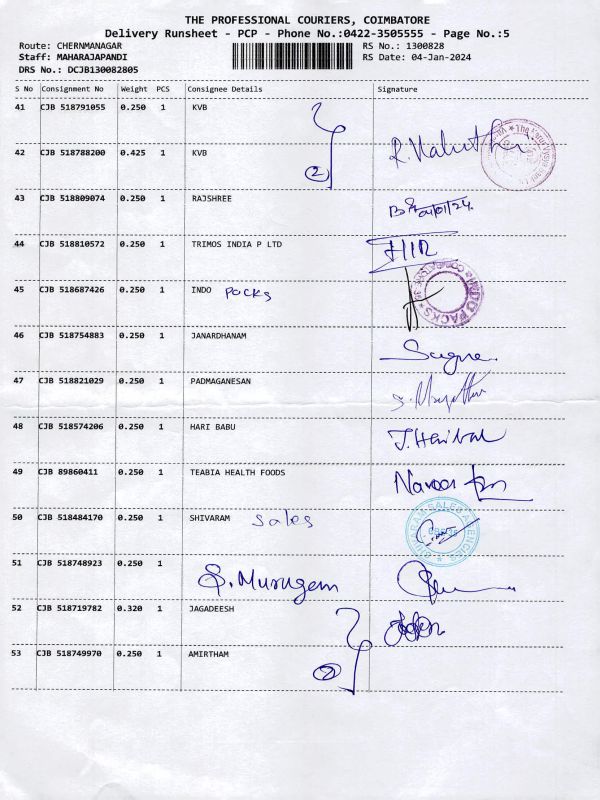 THE PROFESSIONAL COURIERS, COIMBATORE
Delivery Runsheet - PCP - Phone No.:0422-3505555 - Page No.:5
Route: CHERNMANAGAR RS No.: 1300828
Staff: MAHARAJAPANDI RS Date: 04-Jan-2024
DRS No.: DCJB130082805
S No Consignment No Weight PCS Consignee Details Signature
41 CJB 518791055 0.250 1 KVB
42 CJB 518788200 0.425 1 KVB 2
43 CJB 518809074 0.250 1 RAJSHREE 04/01/24
44 CJB 518810572 0.250 1 TRIMOS INDIA P LTD
45 CJB 518687426 0.250 1 INDO Packs INDO PACKS
46 CJB 518754883 0.250 1 JANARDHANAM
47 CJB 518821029 0.250 1 PADMAGANESAN
48 CJB 518574206 0.250 1 HARI BABU
49 CJB 89860411 0.250 1 TEABIA HEALTH FOODS
50 CJB 518484170 0.250 1 SHIVARAM Sales SALES AGENCIES
51 CJB 518748923 0.250 1 S. Murugem
52 CJB 518719782 0.320 1 JAGADEESH
53 CJB 518749970 0.250 1 AMIRTHAM 2